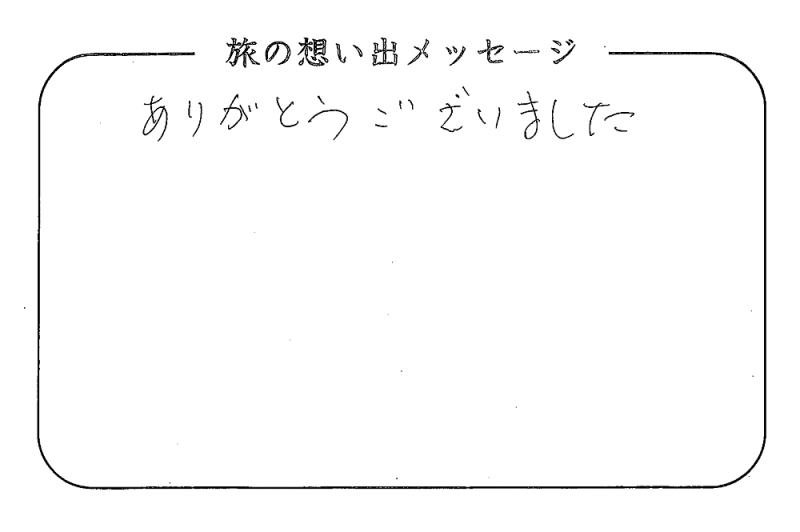 旅の想い出メッセージ
ありがとうございました